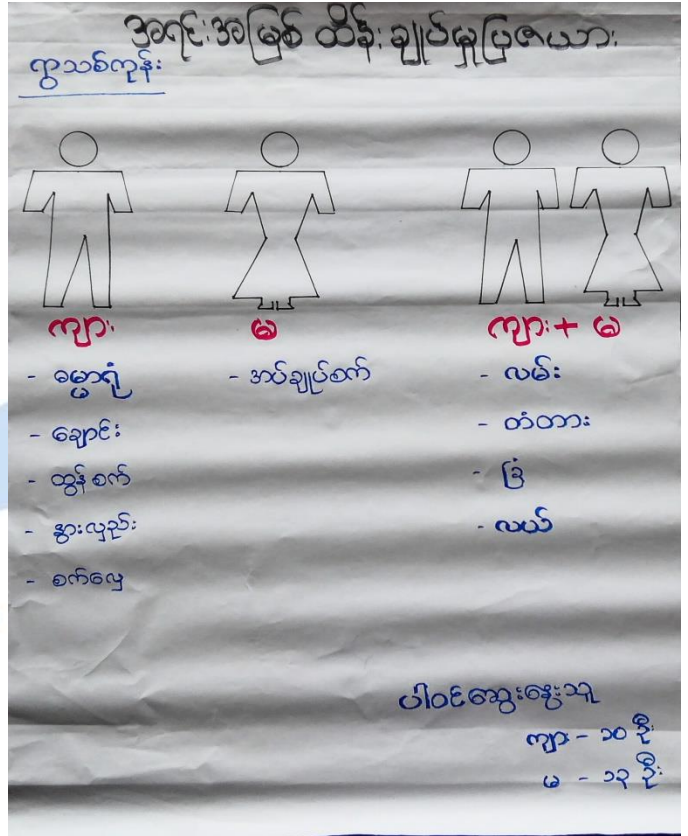 အရင်းအမြစ် ထိန်းချုပ်မှုပြဇယား
ရွာသစ်ကုန်း
ကျား
မ
ကျား + မ
- ဓမ္မာရုံ
- ချောင်း
- ထွန်စက်
- နွားလှည်း
- စက်လှေ
- အပ်ချုပ်စက်
- လမ်း
- တံတား
- ခြံ
- လယ်
ပါဝင်ဆွေးနွေးသူ
ကျား - ၁၀ ဦး
မ - ၁၃ ဦး